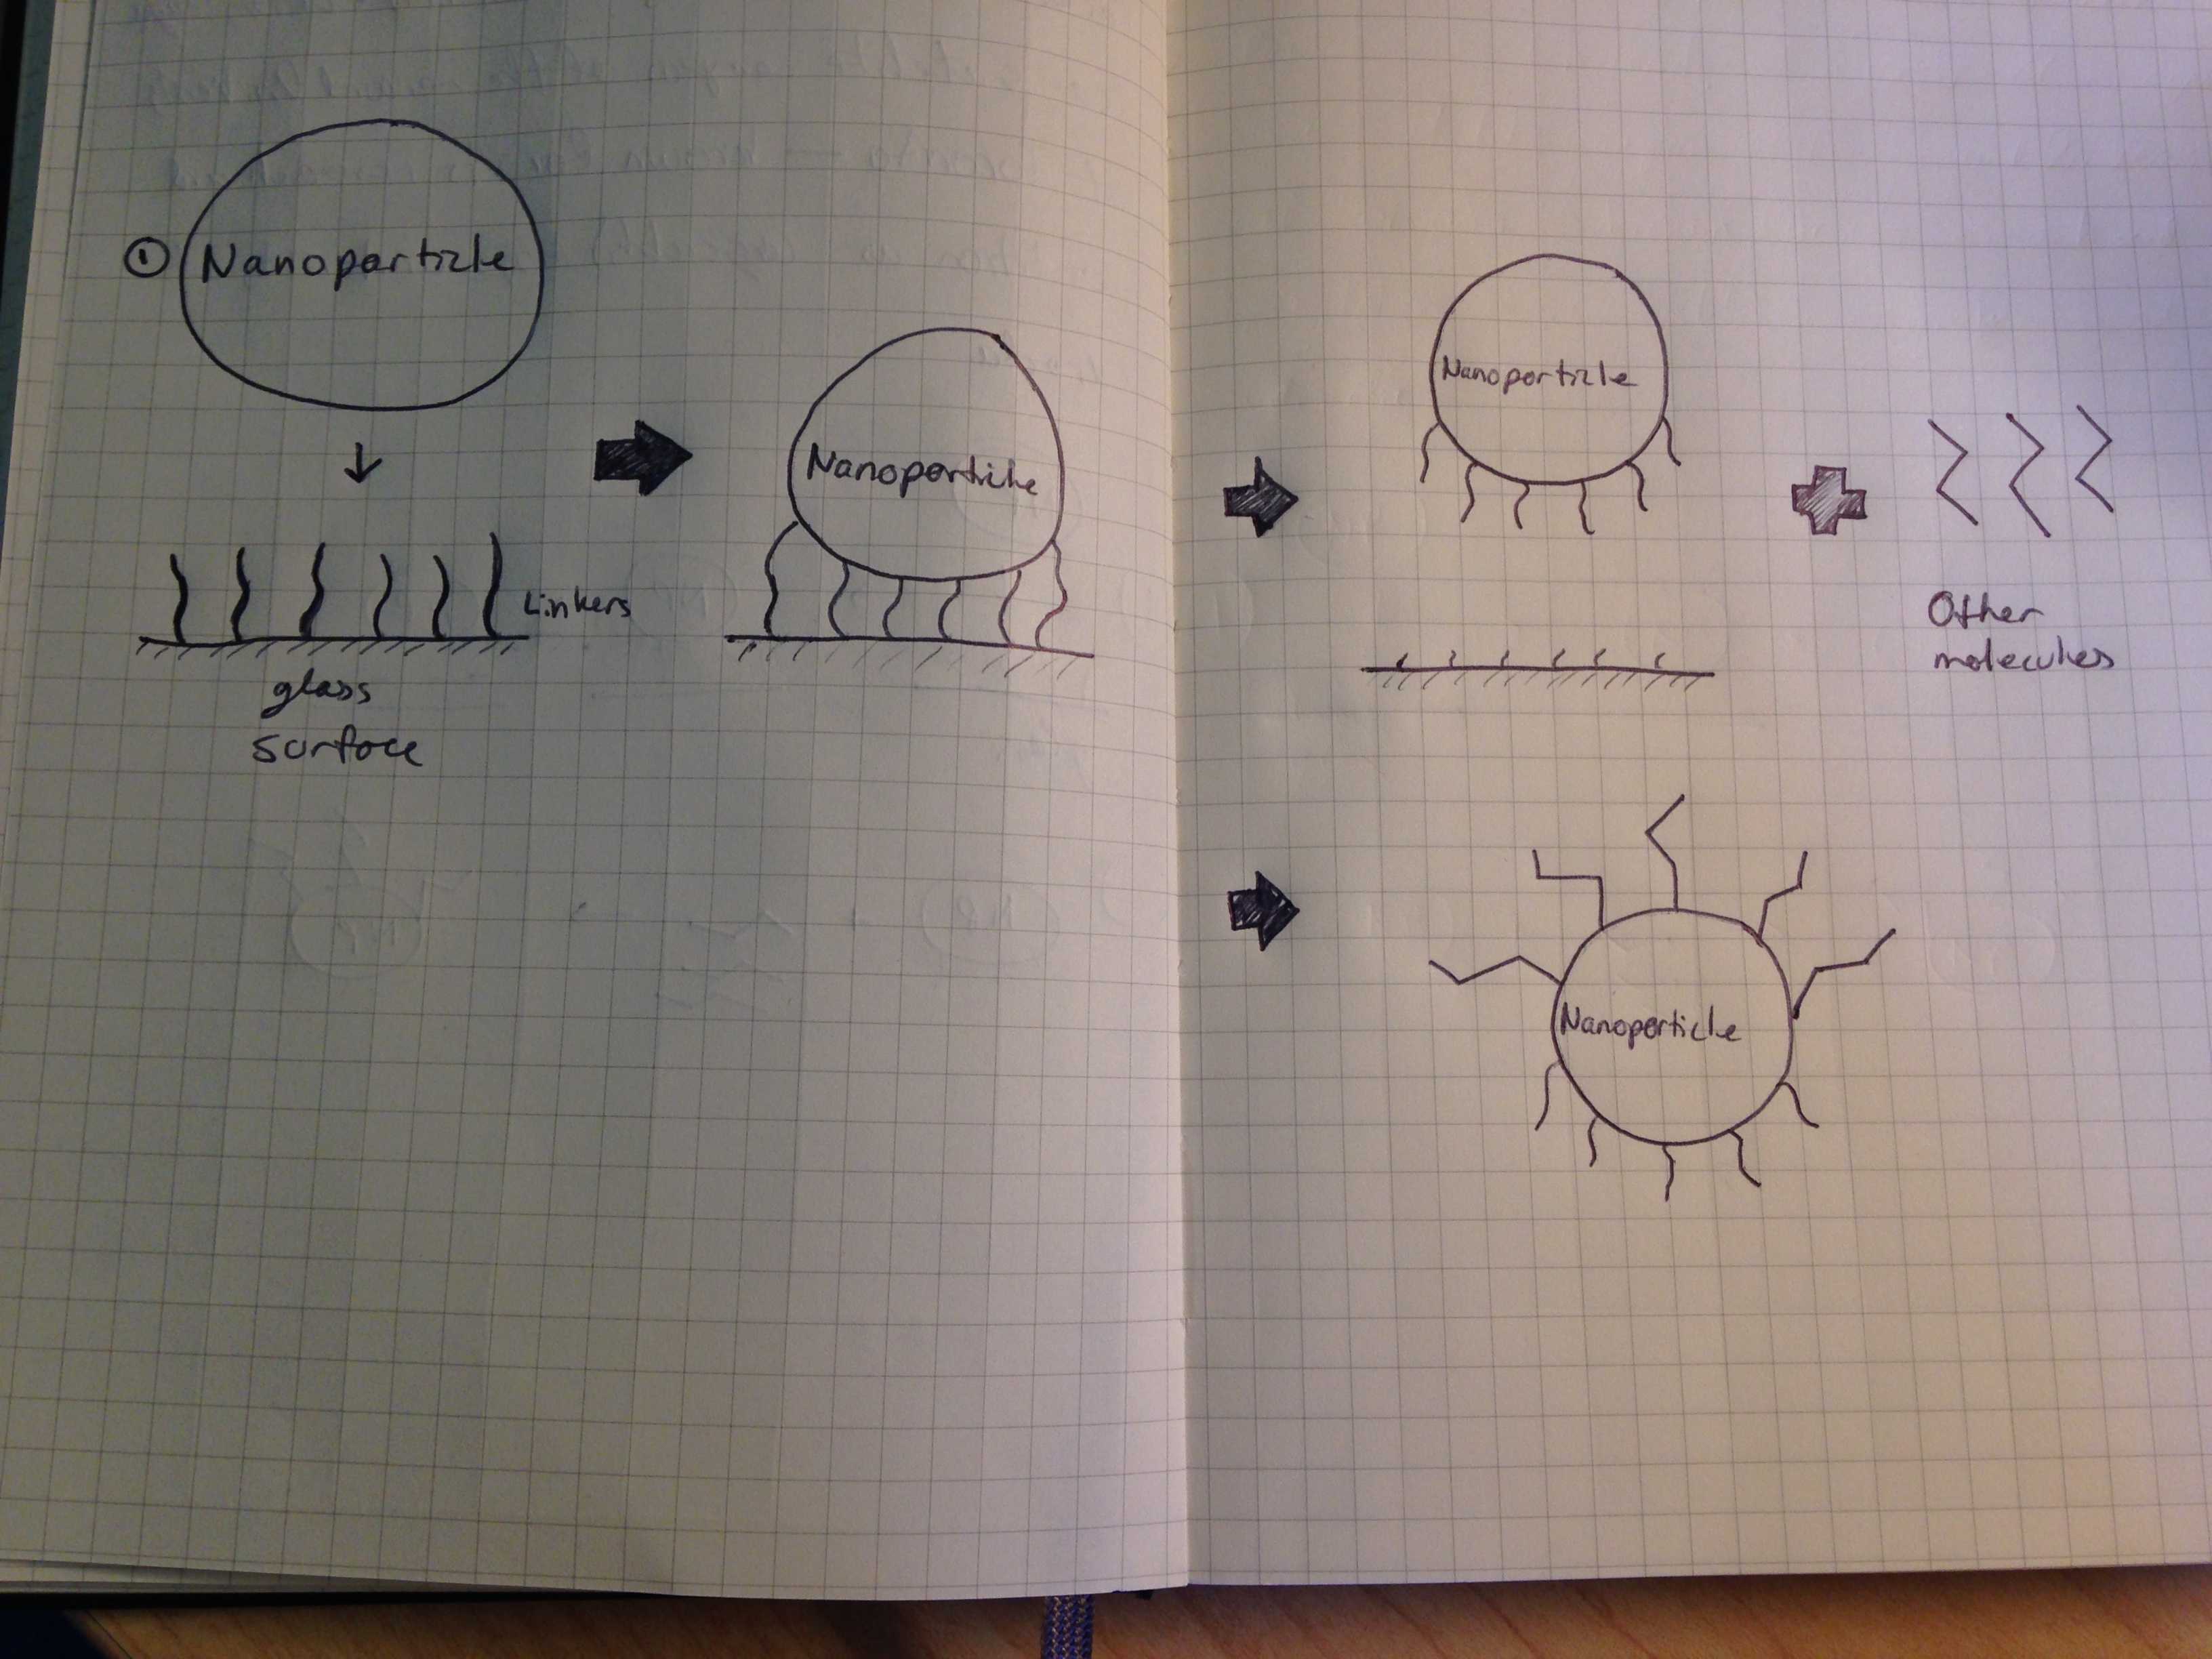 ① Nanoparticle
Linkers
glass
surface
Nanoparticle
Nanoparticle
Other
molecules
Nanoparticle